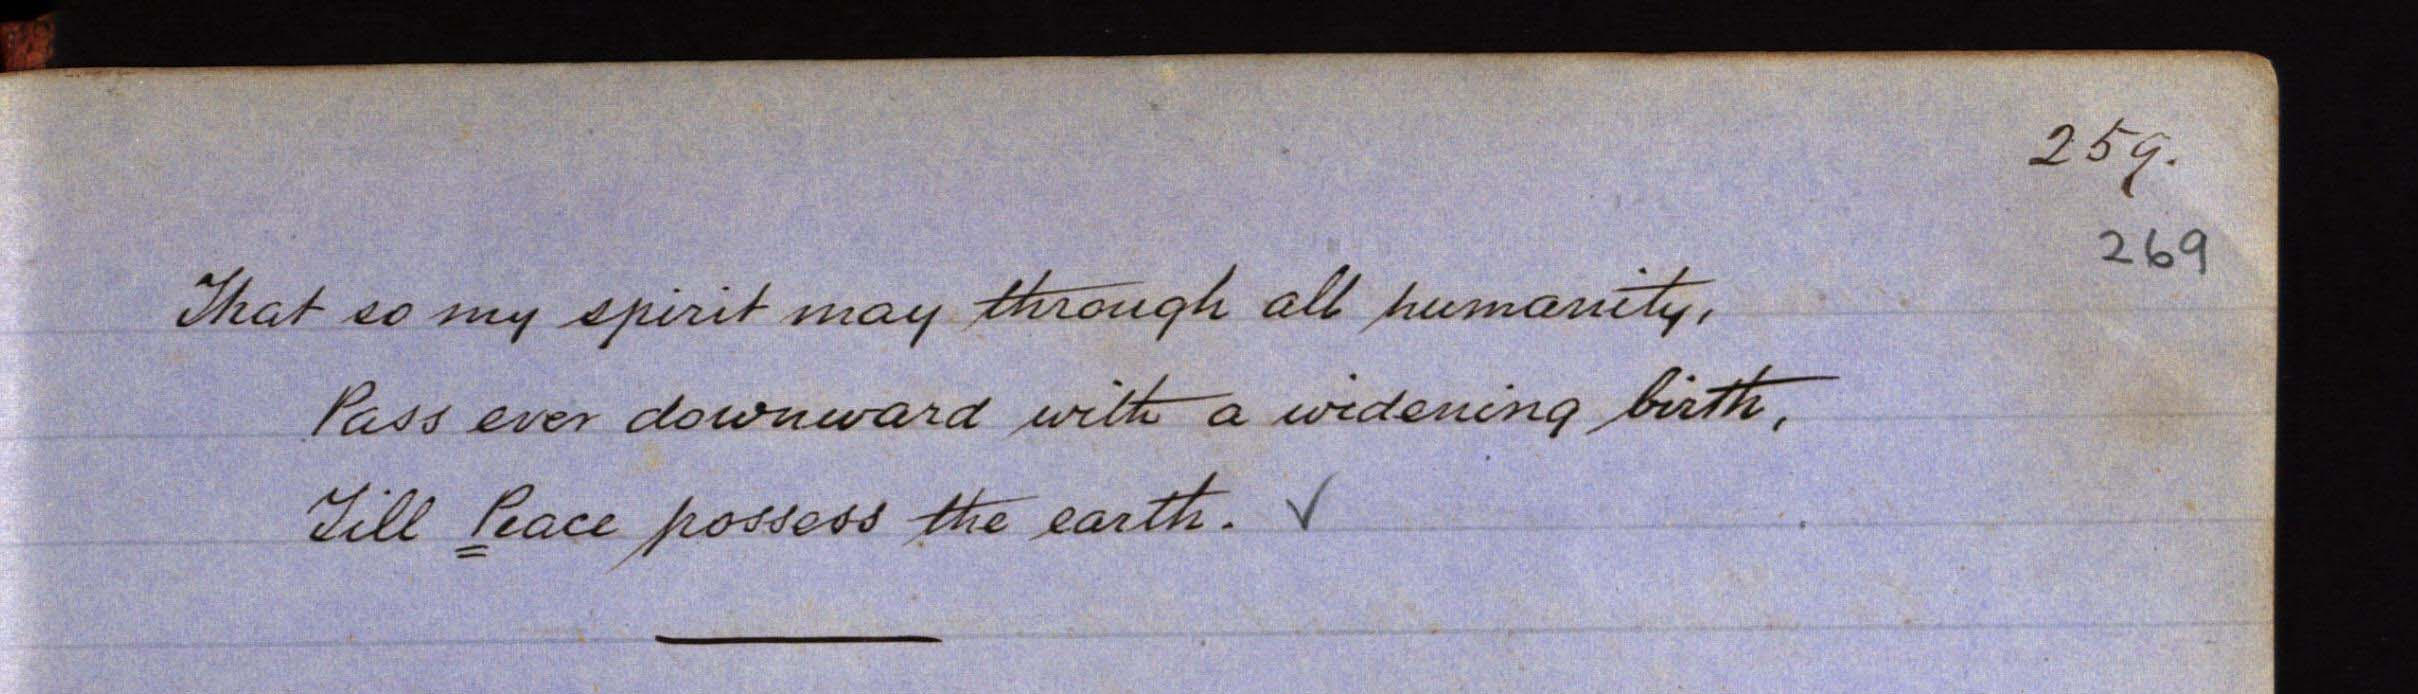 259.
269
That so my spirit may through all humanity,
Pass ever downward with a widening birth,
Till Peace possess the earth. ✓